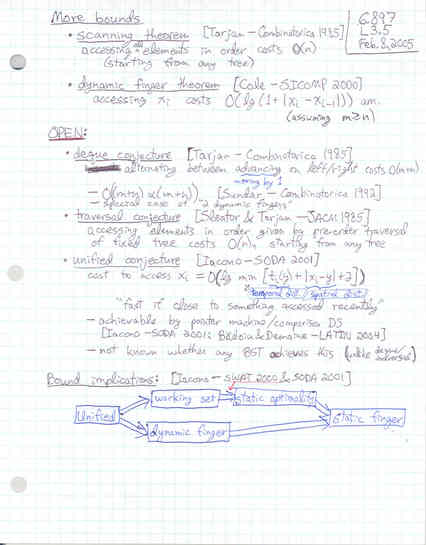 More bounds
6.897
L3.5
Feb. 8, 2005
• scanning theorem [Tarjan - Combinatorica 1985]
accessing all elements in order costs O(n)
(starting from any tree)
• dynamic finger theorem [Cole - SICOMP 2000]
accessing xi costs O(lg(1+|xi - xi-1|)) am.
(assuming m≥n)
OPEN:
• deque conjecture [Tarjan - Combinatorica 1985]
alternating between advancing on left/right costs O(m+n)
moving by 1
- O((m+n) α(m+n)) [Sundar - Combinatorica 1992]
- special case of "2 dynamic fingers"
• traversal conjecture [Sleator & Tarjan - JACM 1985]
accessing elements in order given by preorder traversal
of fixed tree costs O(n), starting from any tree
• unified conjecture [Iacono - SODA 2001]
cost to access xi = O(lg min [ti(y) + |xi - y| + 2])
temporal dist. spatial dist.
"fast if close to something accessed recently"
- achievable by pointer machine/comparison DS
[Iacono - SODA 2001; Bădoiu & Demaine - LATIN 2004]
- not known whether any BST achieves this (unlike deque/traversal)
Bound implications: [Iacono - SWAT 2000 & SODA 2001]
working set
static optimality
Unified
static finger
dynamic finger